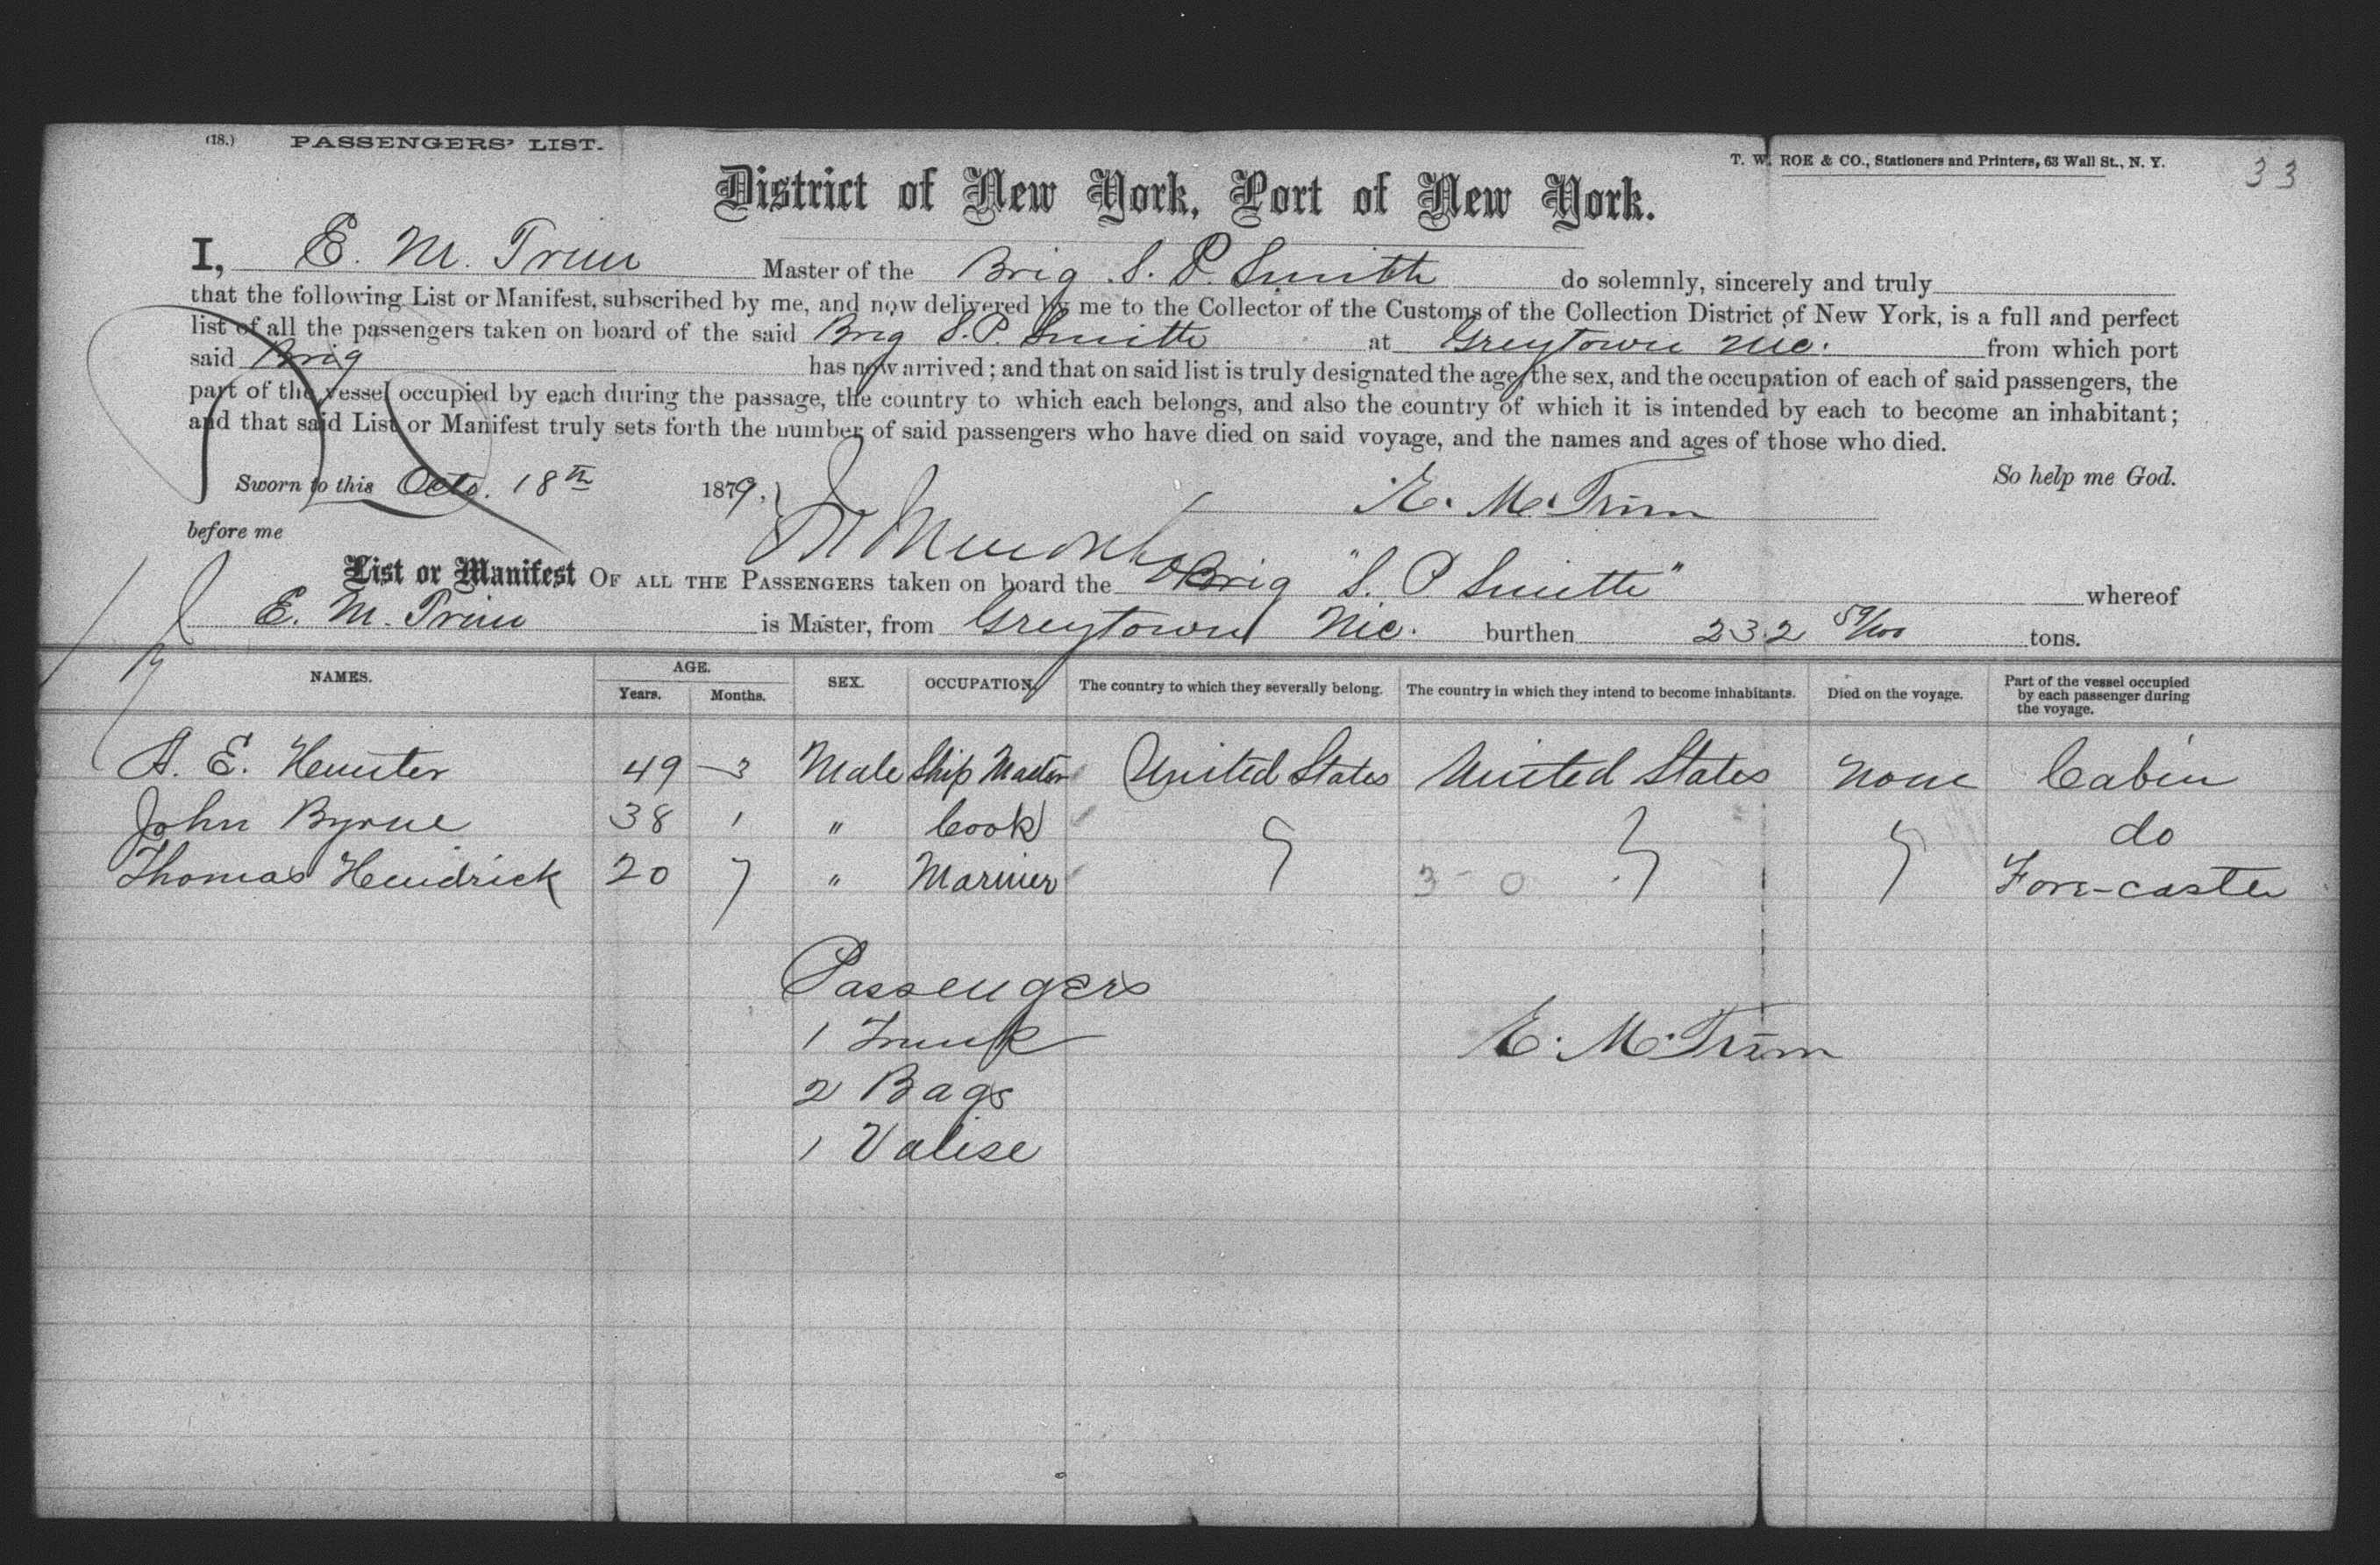 (18.) PASSENGERS' LIST.
T. W. ROE & CO., Stationers and Printers, 63 Wall St., N. Y.
33
District of New York, Port of New York.
I, E. M. Trim Master of the Brig S. P. Smith do solemnly, sincerely and truly
that the following List or Manifest, subscribed by me, and now delivered by me to the Collector of the Customs of the Collection District of New York, is a full and perfect
list of all the passengers taken on board of the said Brig S. P. Smith at Greytown Nic. from which port
said Brig has now arrived; and that on said list is truly designated the age, the sex, and the occupation of each of said passengers, the
part of the vessel occupied by each during the passage, the country to which each belongs, and also the country of which it is intended by each to become an inhabitant;
and that said List or Manifest truly sets forth the number of said passengers who have died on said voyage, and the names and ages of those who died.
So help me God.
Sworn to this Octo. 18th 1879. E. M. Trim
before me
List or Manifest OF ALL THE PASSENGERS taken on board the Brig "S. P Smith" whereof
E. M. Trim is Master, from Greytown Nic. burthen 232 59/100 tons.
NAMES. AGE. Years. Months. SEX. OCCUPATION. The country to which they severally belong. The country in which they intend to become inhabitants. Died on the voyage. Part of the vessel occupied by each passenger during the voyage.
A. E. Hunter 49 3 Male Ship Master United States United States None Cabin
John Byrne 38 1 " Cook do
Thomas Hendrick 20 7 " Mariner 3 - 0 Fore-castle
Passengers
1 Trunk
E. M. Trim
2 Bags
1 Valise